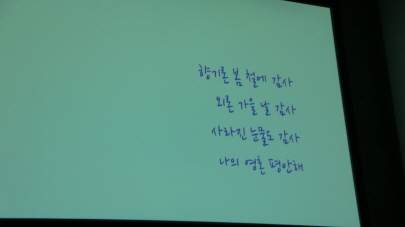 향기론 봄 철에 감사
외론 가을 날 감사
사라진 눈물도 감사
나의 영혼 평안해